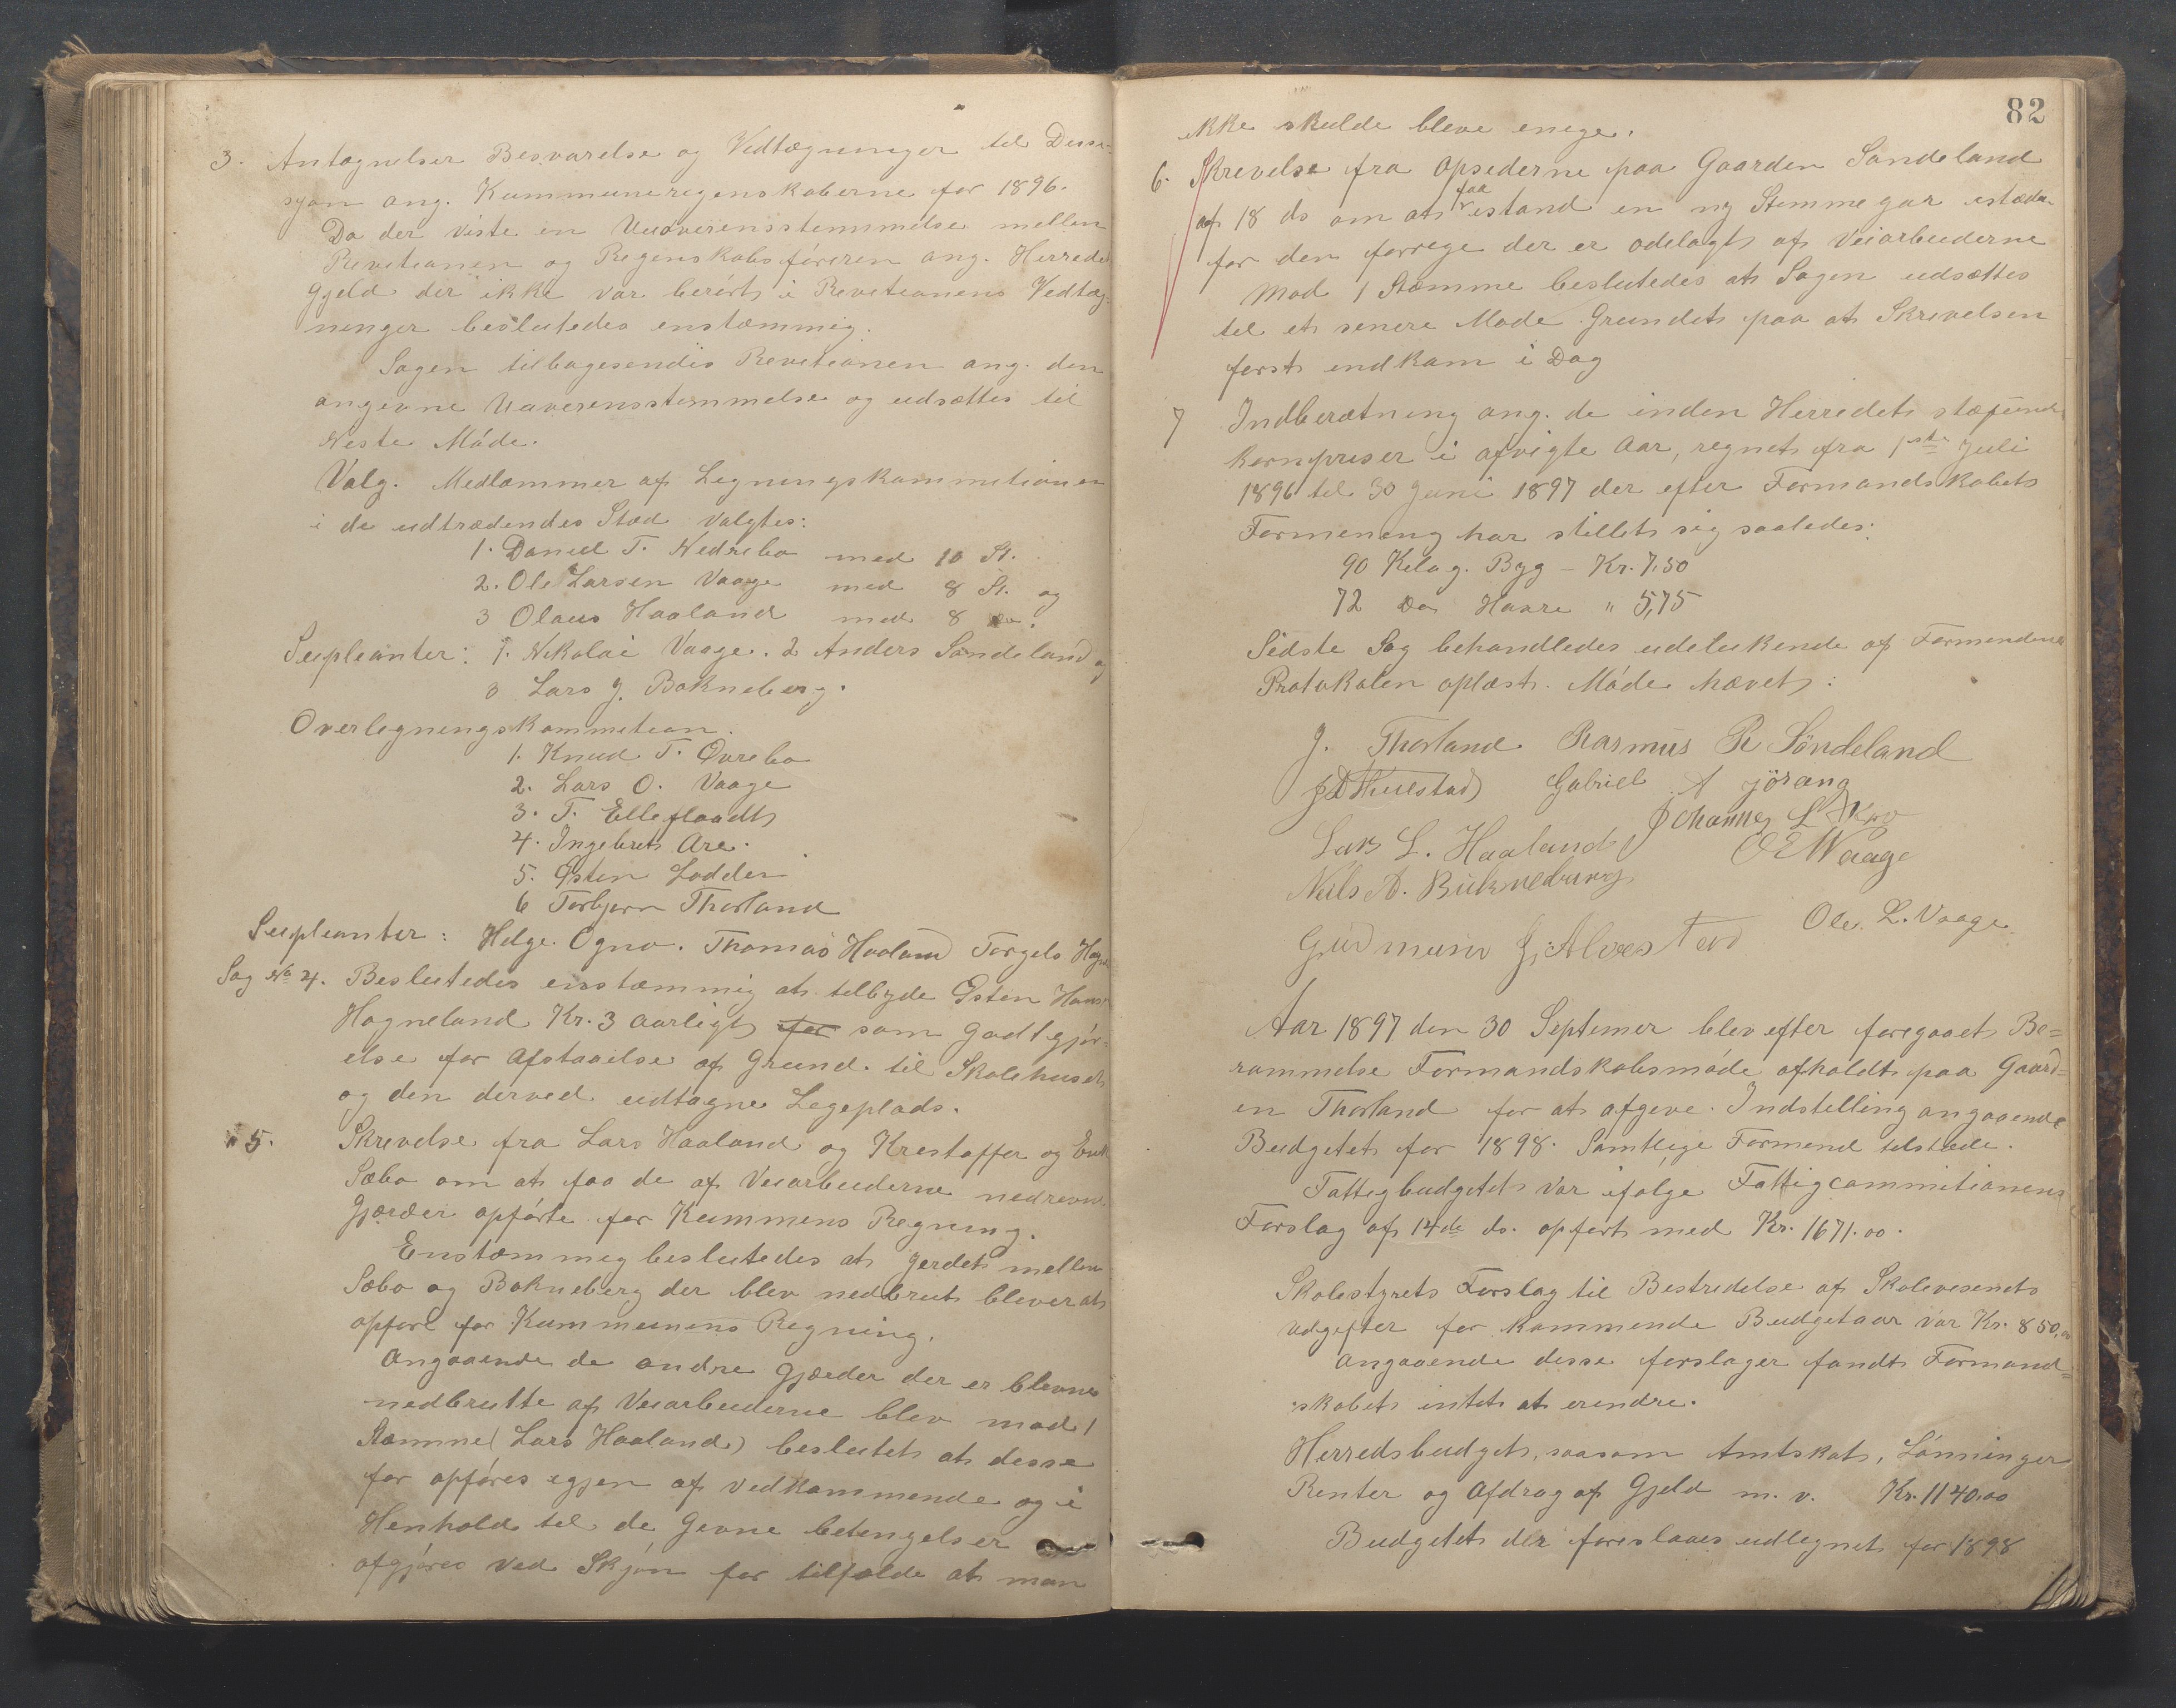 3. Antagnelser Besvarelse og Vedtægninger til Desse-
syon ang. Kummuneregenskaberne for 1896.
Da der viste en Uuoverensstemmelse mellem
Revitionen og Regenskabsføreren ang. Herreds
gjeld der ikke var berørt i Revetionens Vedtæg-
ninger besluttedes enstæmmig.
Sagen tilbagesendes Revetionen ang. den
angivne Uuverensstemmelse og udsættes til
Neste Møde.
Valg. Medlæmmer af Legningskommitionen
i de udtrædendes Stæd valgtes:
1. Daniel T. Nedrebø med 10 St.
2. Ole Larsen Vaage med 8 St. og
3 Olaus Haaland med 8 do.
Supleanter: 1. Nikolai Vaage. 2 Anders Søndeland og
3 Lars J. Bokneberg.
Overlegningskommition.
1. Knud T. Øvrebø
2. Lars O. Vaage
3. T. Elleflaadt
4. Ingebret Are.
5. Østen Lodden
6 Torbjørn Thorland
Supleanter: Helge Ogno. Thomas Haaland Torgels
Sag No 4. Beslutedes enstæmmig at tilbyde Østen Hans
Hogneland Kr. 3 aarligt for som Godtgjør-
else for Afstaaelse af Grund til Skolehuset
og den derved udtagne Legeplads.
" 5. Skrevelse fra Lars Haaland og Krestoffer og Erik
Sæbø om at faa de af Veiarbeiderne nedrevne
Gjærder opførte for Kummens Regning.
Enstæmmig beslutedes at Jerdet mellem
Sæbø og Bokneberg der blev nedbrut blever at
opføre for Kummunens Regning.
Angaaende de andre Gjærder der er blevne
nedbrutte af Veiarbeiderne blev mod 1
Stæmme (Lars Haaland) beslutet at desse
før opføres egjen af vedkommende og i
Henhold til de Gevne betengelser
afgjøres ved Skjøn for tilfælde at man
82
ikke skulde bleve enege.
6. Skrevelse fra Opsederne paa Gaarden Søndeland
af 18 ds om at faa istand en ny Stemmegar istæden
for den forrege der er ødelagt af Veiarbeiderne
Mod 1 Stæmme beslutedes at Sagen udsættes
til et senere Møde Grundet paa at Skrevelsen
først indkom i Dag
7 Indberætning ang. de inden Herredet stæfund-
kornpreser i afvigte Aar, regnet fra 1ste Juli
1896 til 30 Juni 1897 der efter Formandskabets
Formening har stillet sig saaledes:
90 Kelog. Byg - Kr. 7.50
72 Do Havre " 5,75
Sidste Sag behandledes udelukende af Formendene
Protokolen oplæst. Møde hævet:
J. Thorland Rasmus R Søndeland
Gabriel A Jøsang
Lars L. Haaland
O E Waage
Nils A. Bukneberg
Ole L. Vaage
Gudmund J. Alvestad
Aar 1897 den 30 Septemer blev efter foregaaet Be=
rammelse Formandskabsmøde afholdt paa Gaard=
en Thorland for at afgeve Indstelling angaaende
Budgetet for 1898. Samtlige Formend tilstæde.
Fattigbudgetet var ifølge Fattigcommitionens
Forslag af 14de ds. opført med Kr. 1671.00.
Skolestyrets Forslag til Bestredelse af Skolevesenets
Udgifter for kommende Budgetaar var Kr. 850,00
Angaaende desse forslager fandt Formand=
skabet intet at erendre.
Herredsbudget, saasom Amtskat, Lønninger
Renter og Afdrag af Gjeld m. v. Kr. 1140.00
Budgetet der foreslaaes udlegnet for 1898